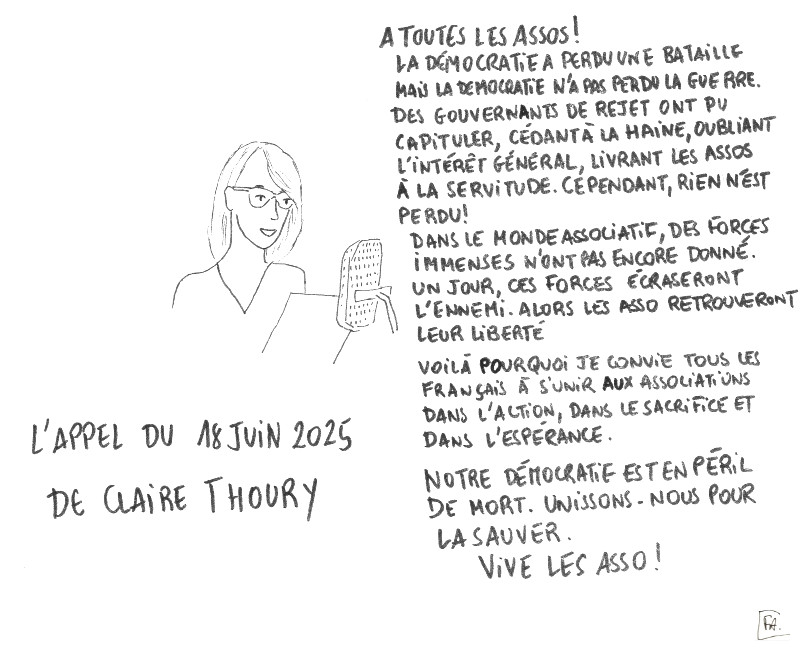 A TOUTES LES ASSOS!
LA DÉMOCRATIE A PERDU UNE BATAILLE
MAIS LA DEMOCRATIE N'A PAS PERDU LA GUERRE.
DES GOUVERNANTS DE REJET ONT PU
CAPITULER, CÉDANT À LA HAINE, OUBLIANT
L'INTÉRÊT GÉNÉRAL, LIVRANT LES ASSOS
À LA SERVITUDE. CEPENDANT, RIEN N'EST
PERDU!
DANS LE MONDE ASSOCIATIF, DES FORCES
IMMENSES N'ONT PAS ENCORE DONNÉ.
UN JOUR, CES FORCES ÉCRASERONT
L'ENNEMI. ALORS LES ASSO RETROUVERONT
LEUR LIBERTÉ
VOILÀ POURQUOI JE CONVIE TOUS LES
FRANÇAIS À S'UNIR AUX ASSOCIATIONS
DANS L'ACTION, DANS LE SACRIFICE ET
DANS L'ESPÉRANCE.
NOTRE DÉMOCRATIE EST EN PÉRIL
DE MORT. UNISSONS-NOUS POUR
LA SAUVER.
VIVE LES ASSO!
L'APPEL DU 18 JUIN 2025
DE CLAIRE THOURY
FA.